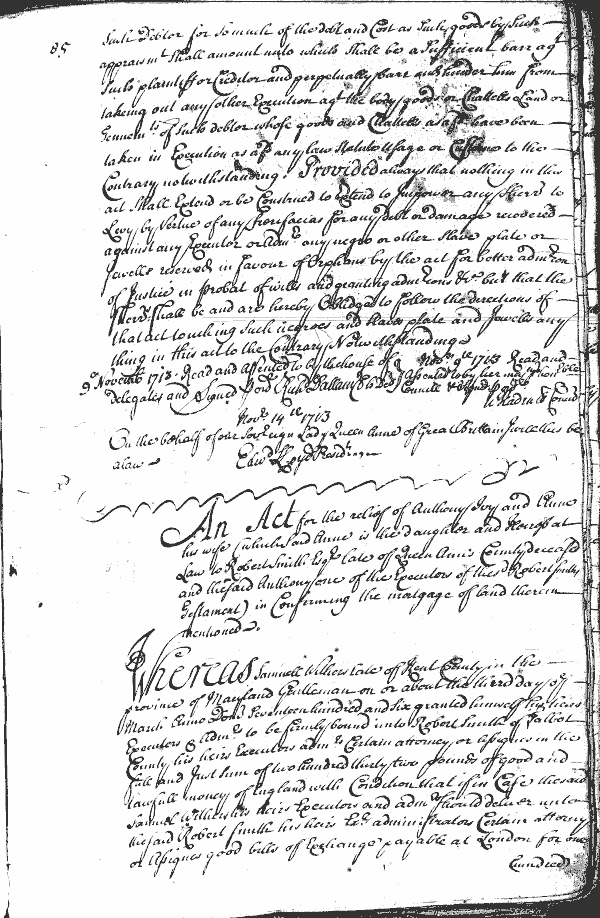 85
Such Debtor for so much of the debt and Cost as such goods by Such
appraism.t Shall amount unto which Shall be a Sufficient barr ag.t
Such plaintiff or Creditor and perpetually barr and hinder him from
taking out any other Execution ag.t the body goods or Chattells Land or
Tennem.ts of Such debtor whose goods and Chattells as aff.d have been
taken in Execution as aff.d any law Statute Usage or Custome to the
Contrary notwithstanding. Provided always that nothing in this
act Shall Extend or be Construed to Extend to Impower any Sherr. to
Levy by Vertue of any fierifacias for any debt or damage recovered
against any Executor or Adm.r any negro or other Slave plate or
Jewells reserved in favour of Orphans by the act for better adm.con
of Justice in probat of wills and granting adm.cons &c. but that the
Sherr. Shall be and are hereby Obliged to follow the directions of
that act touching Such negroes and Slaves plate and Jewells any
thing in this act to the Contrary Notwithstanding
9.o Novemb. 1713. Read and assented to by the house of
Delegates and Signed
Nov.r 9.th 1713 Read and
assented to by her maj.tys hon.ble
Councill & Signed
Nov.r 14.th 1713
On the behalf of our Sovereign Lady Queen Anne of Great Brittain I will this be
a law
Edw.d Lloyd Presid.t
An Act for the relief of Anthony Ivy and Anne
his wife (which said Anne is the daughter and Heir at
Law to Robert Smith Esq.r late of Queen Ann's County deceased
and the said Anthony one of the Executors of the s.d Robert Smiths
Testament) in Confirming the mortgage of land therein
mentioned.
Whereas Samuell Withers late of Kent County in the
province of Maryland Gentleman on or about the third day of
March Anno Dom. Seventeen hundred and six granted himself his heirs
Executors & Adm.rs to be firmly bound unto Robert Smith of Talbot
County his heirs Executors adm.rs Certain attorney or assignes in the
full and Just Sum of two hundred thirty two pounds of good and
lawfull money of England with Condition that if in Case the said
Samuel Withers his heirs Executors and adm.rs Should deliver unto
the said Robert Smith his heirs Ex.rs administrators Certain attorny
or assignes good bills of Exchange payable at London for one
hundred